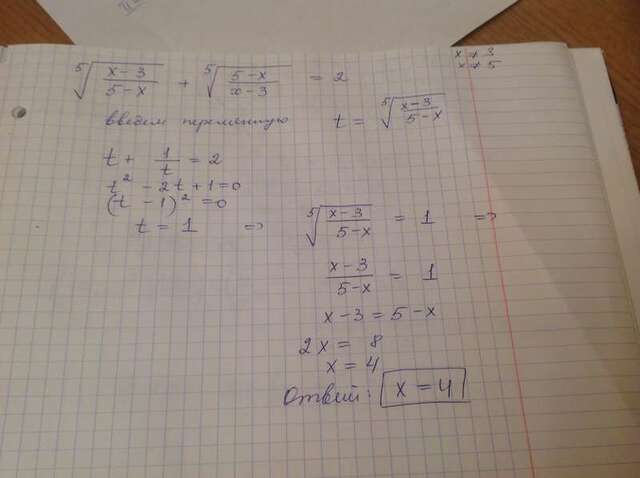 ⁵√((x-3)/(5-x)) + ⁵√((5-x)/(x-3)) = 2
x ≠ 3
x ≠ 5
введем переменную t = ⁵√((x-3)/(5-x))
t + 1/t = 2
t² - 2t + 1 = 0
(t - 1)² = 0
t = 1 => ⁵√((x-3)/(5-x)) = 1 =>
(x-3)/(5-x) = 1
x - 3 = 5 - x
2x = 8
x = 4
Ответ: x = 4